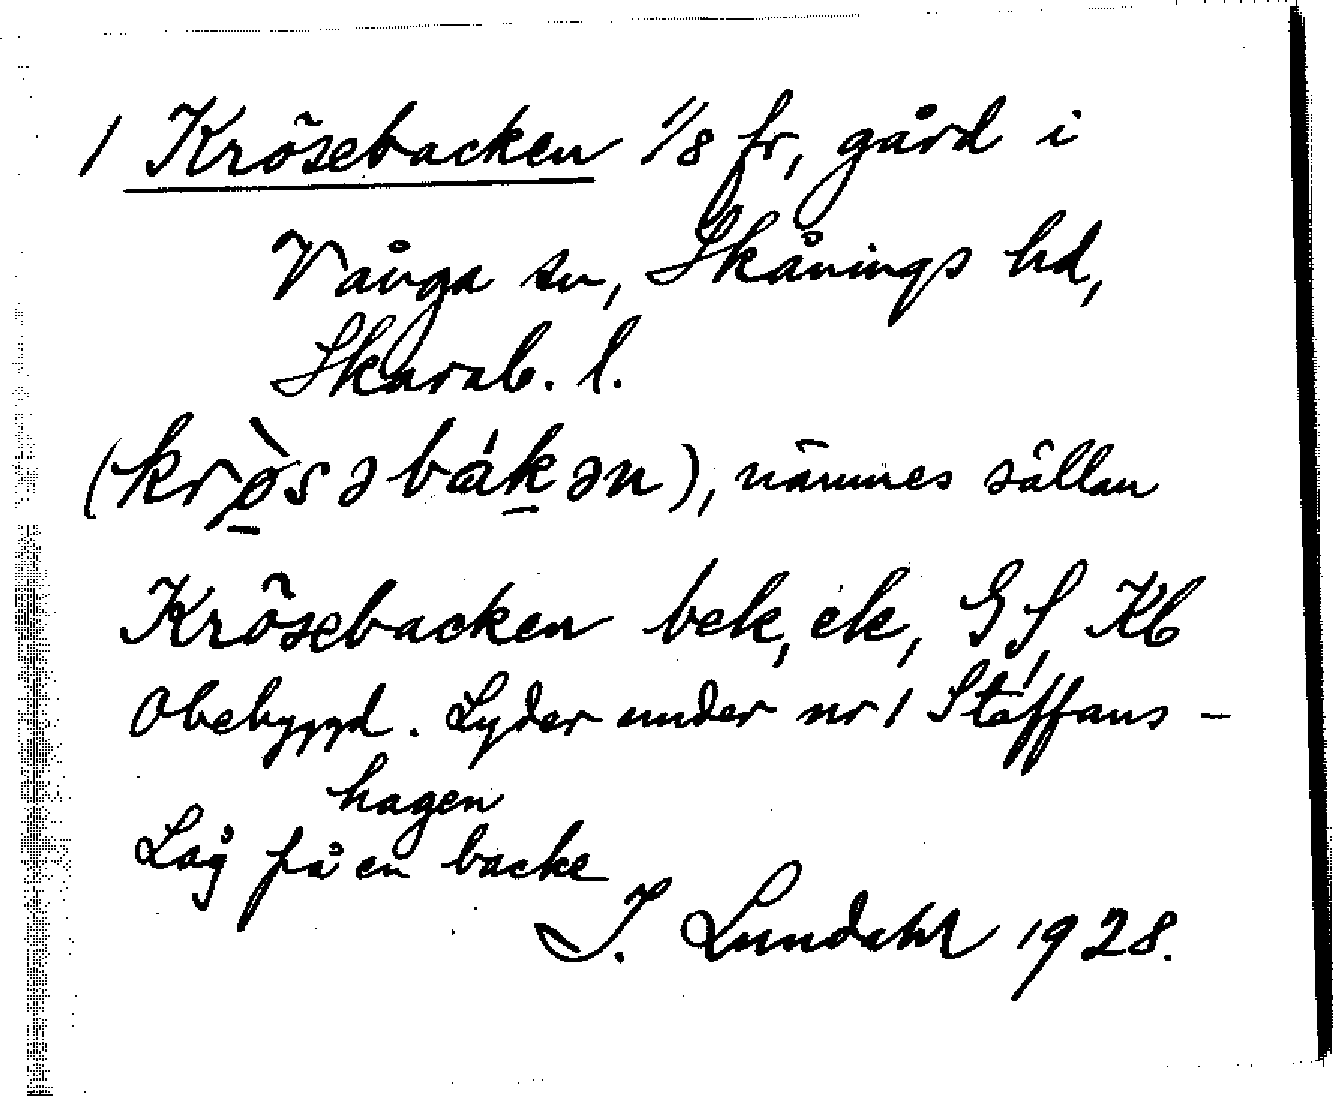 1 Krösebacken 1/8 fr, gård i
Vånga sn, Skånings hd,
Skarab. l.
(krø̀səbákən), nämnes sällan
Krösebacken bek, ek, GS, Kb
Obebyggd. Lyder under nr 1 Staffans-
hagen
Låg på en backe
I. Lundahl 1928.